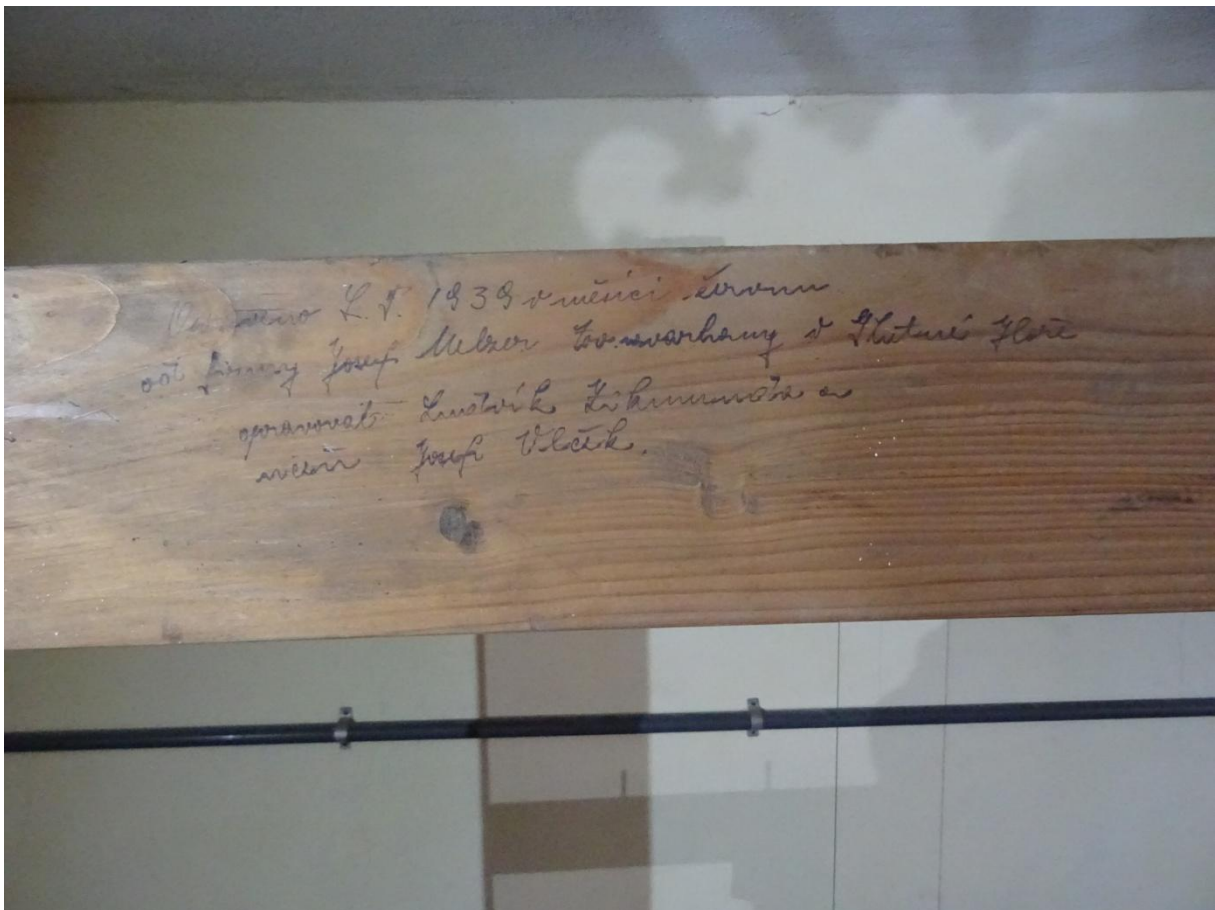 Opraveno L.P. 1939 v měsíci červnu
od firmy Josef Melzer tov. varhany v Hutné Hoře
opravovat Ludvík Zikmunda a
učeň Josef Vlček.